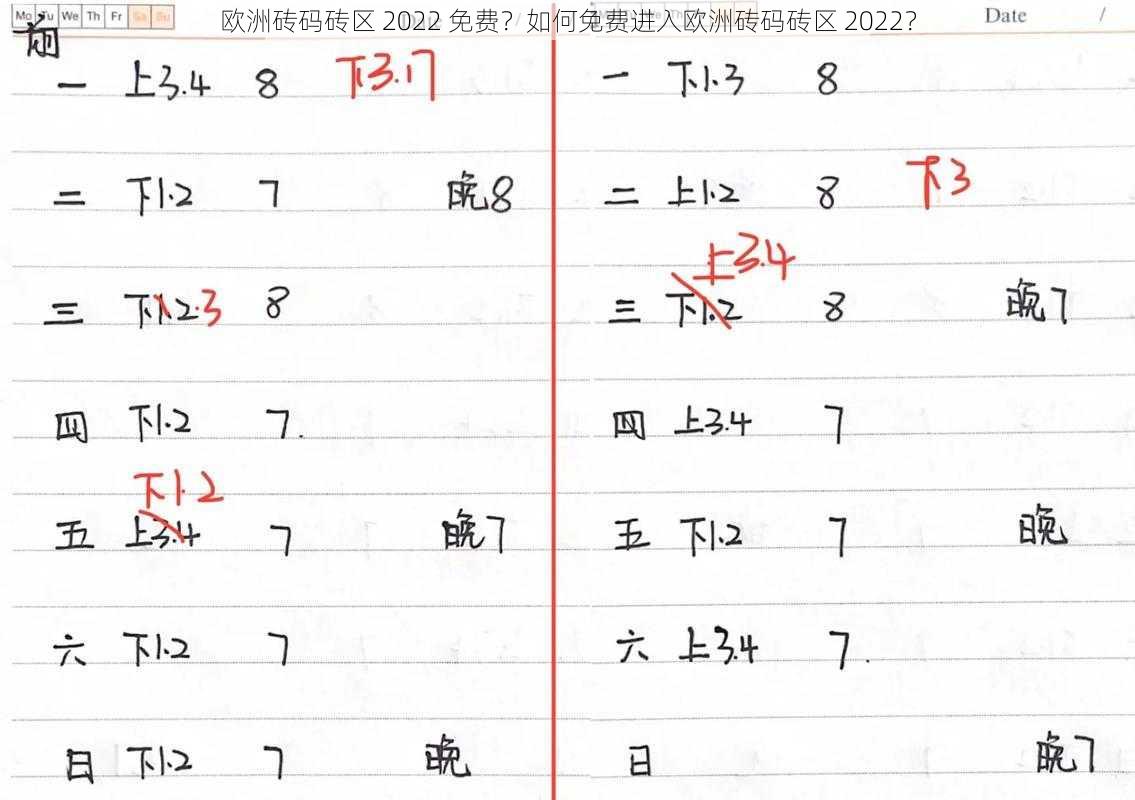 欧洲砖码砖区 2022 免费？如何免费进入欧洲砖码砖区 2022？
Mo Tu We Th Fr Sa Su
Date /
一 上3.4 8 下3.17
二 下1.2 7 晚8
三 下1.2.3 8
四 下1.2 7.
下1.2
五 上3.4 7 晚7
六 下1.2 7
日 下1.2 7 晚
一 下1.3 8
二 上1.2 8 下3
上3.4
三 下1.2 8 晚7
四 上3.4 7
五 下1.2 7 晚
六 上3.4 7.
日 晚7